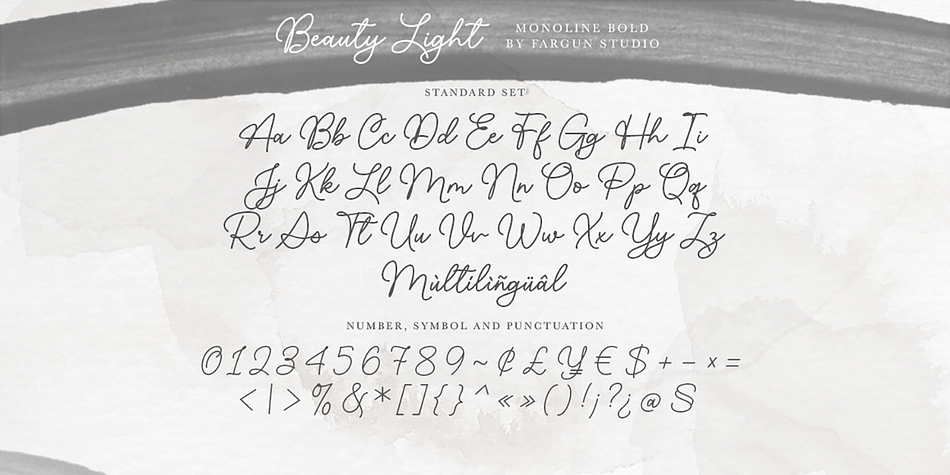 Beauty Light
MONOLINE BOLD
BY FARGUN STUDIO
STANDARD SET
Aa Bb Cc Dd Ee Ff Gg Hh Ii
Jj Kk Ll Mm Nn Oo Pp Qq
Rr Ss Tt Uu Vv Ww Xx Yy Zz
Mùltilìñgüâl
NUMBER, SYMBOL AND PUNCTUATION
0123456789~₵£¥€$+-×=
<|>%&*[]{}^«»()!¡?¿@S